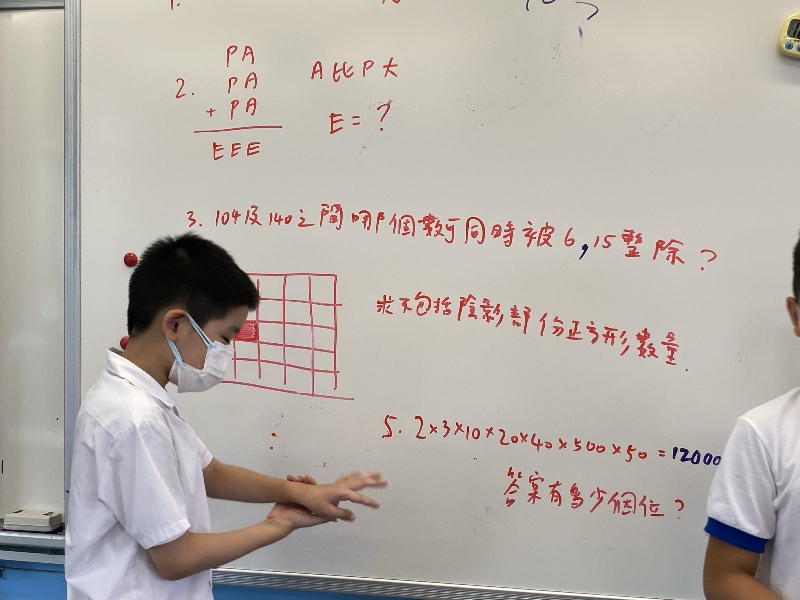 1.
PA
2. PA
+ PA
EEE
A比P大
E = ?
3. 104及140之間哪個數可同時被6,15整除?
求不包括陰影部份正方形數量.
5. 2×3×10×20×40×500×50 = 12000
答案有多少個位?